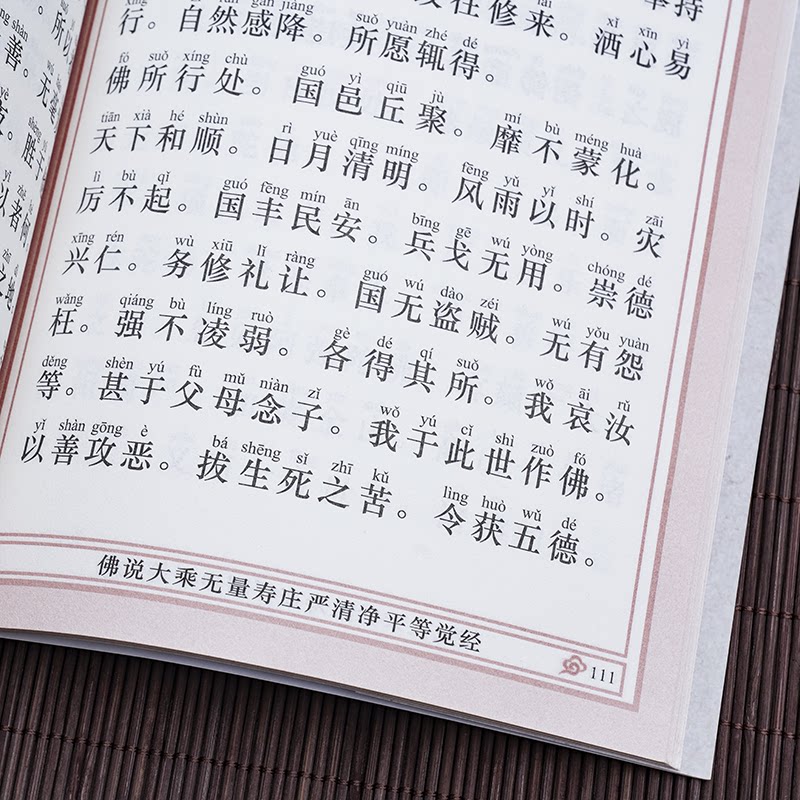 持
修来。洒心易
xǐ xīn yì
行。自然感降。所愿辄得。
suǒ xíng chù guó yì qiū jù mí bù méng huà
佛所行处。国邑丘聚。靡不蒙化。
tiān xià hé shùn rì yuè qīng míng fēng yǔ yǐ shí zāi
天下和顺。日月清明。风雨以时。灾
lì bù qǐ guó fēng mín ān bīng gē wú yòng chóng dé
厉不起。国丰民安。兵戈无用。崇德
xīng rén wù xiū lǐ ràng guó wú dào zéi wú yǒu yuàn
兴仁。务修礼让。国无盗贼。无有怨
wǎng qiáng bù líng ruò gè dé qí suǒ wǒ āi rǔ
枉。强不凌弱。各得其所。我哀汝
děng shèn yú fù mǔ niàn zǐ wǒ yú cǐ shì zuò fó
等。甚于父母念子。我于此世作佛。
yǐ shàn gōng è bá shēng sǐ zhī kǔ lìng huò wǔ dé
以善攻恶。拔生死之苦。令获五德。
佛说大乘无量寿庄严清净平等觉经
111